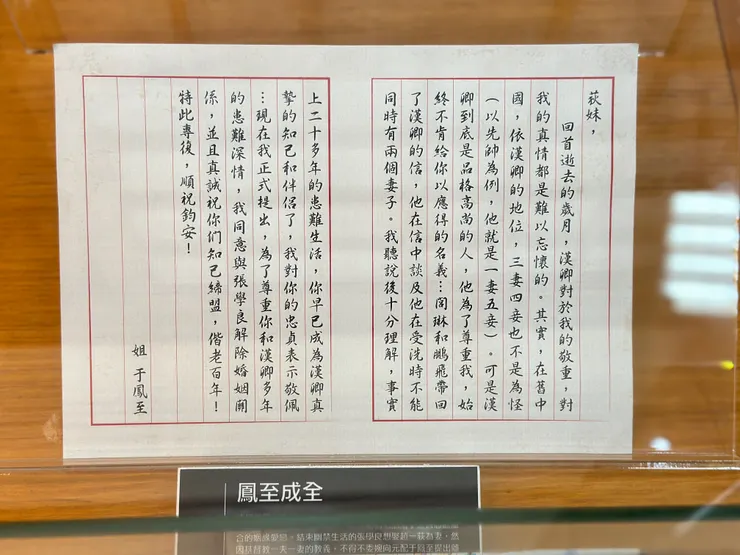 荻妹，
回首逝去的歲月，漢卿對於我的敬重，對
我的真情都是難以忘懷的。其實，在舊中
國，依漢卿的地位，三妻四妾也不是為怪
（以先帥為例，他就是一妻五妾）。可是漢
卿到底是品格高尚的人，他為了尊重我，始
終不肯給你以應得的名義…閭琳和鵬飛帶回
了漢卿的信，他在信中談及他在受洗時不能
同時有兩個妻子。我聽說後十分理解，事實
上二十多年的患難生活，你早已成為漢卿真
摯的知己和伴侶了，我對你的忠貞表示敬佩
…現在我正式提出，為了尊重你和漢卿多年
的患難深情，我同意與張學良解除婚姻關
係，並且真誠祝你们知己締盟，偕老百年！
特此專復，順祝鈞安！
姐 于鳳至
鳳至成全
合的姻緣愛侶。結束幽禁生活的張學良想娶趙一荻為妻，然
因基督教一夫一妻的教義，不得不委婉向元配于鳳至提出離